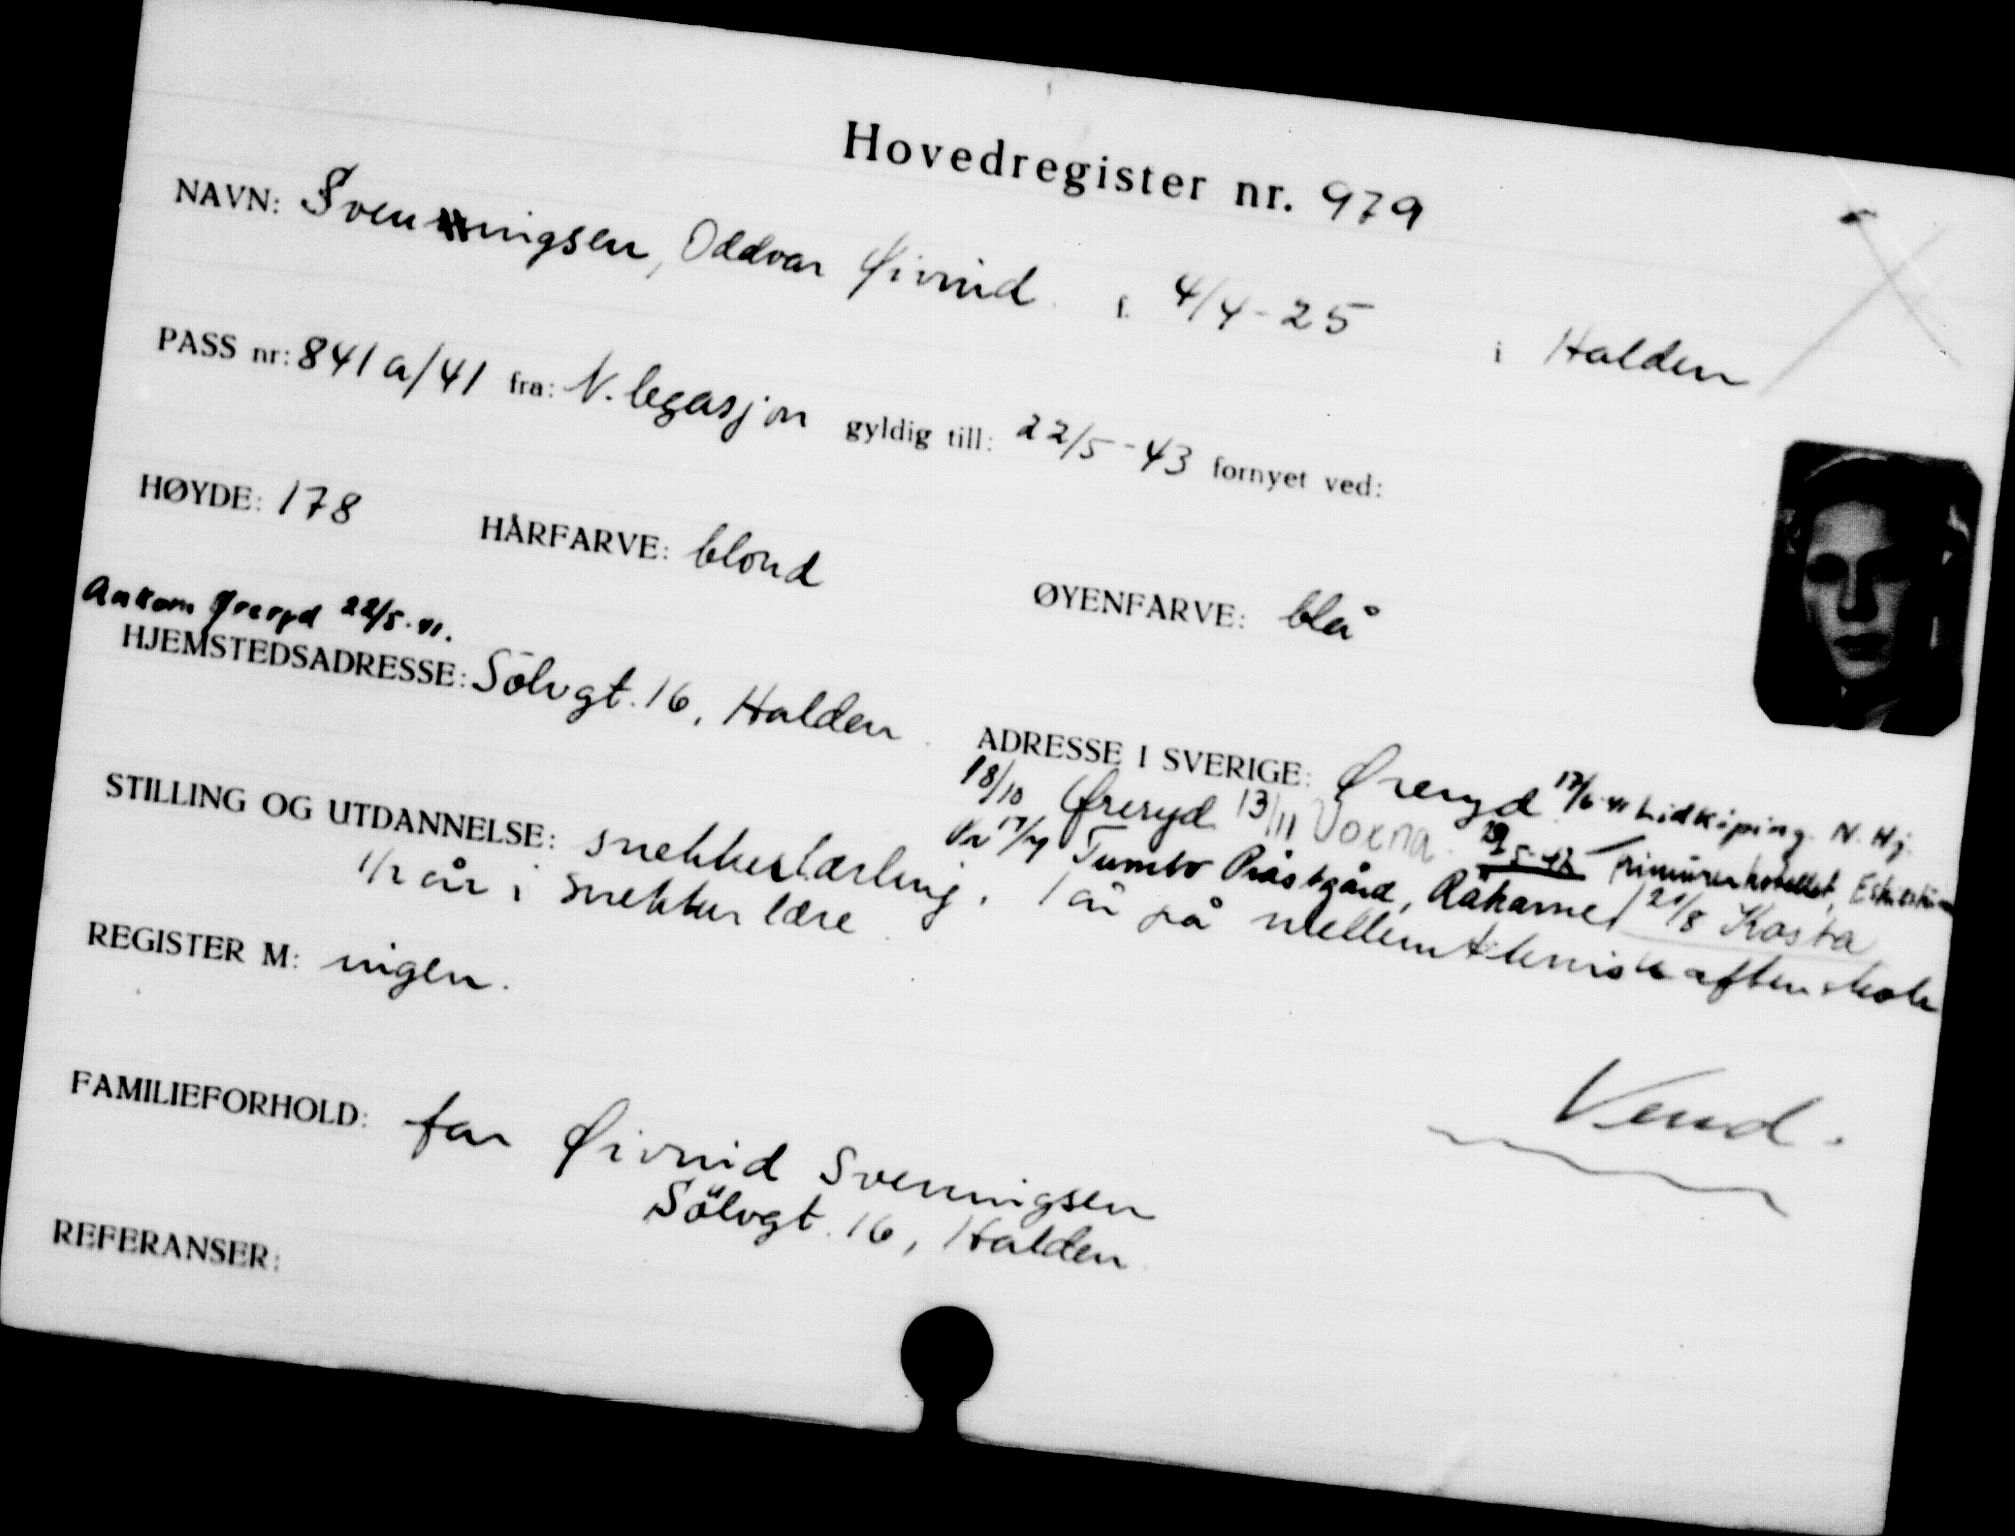 Hovedregister nr. 979
NAVN: Svenningsen, Oddvar Øivind f. 4/4-25 i Halden
PASS nr: 841a/41 fra: N. legasjon gyldig till: 22/5-43 fornyet ved:
HØYDE: 178 HÅRFARVE: blond ØYENFARVE: blå
Ankom Øreryd 22/5-41.
HJEMSTEDSADRESSE: Sölvgt. 16, Halden. ADRESSE I SVERIGE: Øreryd 17/6-41 Lidköping. N. Hj.
18/10 Øreryd 13/11 Voxna. 29/5-42
17/7 Tumbo Prästgård, Råkarne 21/8 Kosta
STILLING OG UTDANNELSE: snekkerlærling. 1 år på mellemteknisk aftenskole
1/2 år i snekker lære.
REGISTER M: ingen.
Vend.
FAMILIEFORHOLD: far Øivind Svenningsen
Sölvgt. 16, Halden.
REFERANSER: